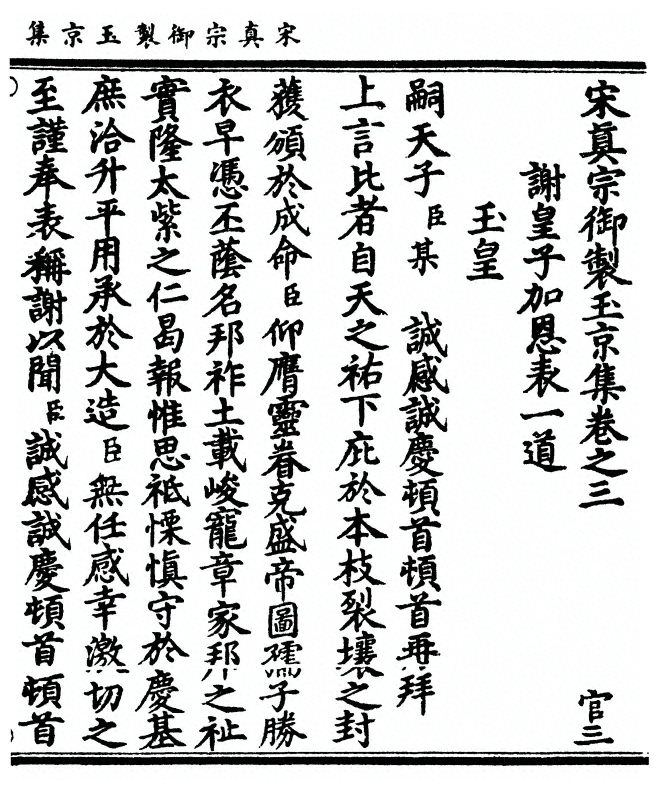 宋真宗御製玉京集
宋真宗御製玉京集卷之三　官三
謝皇子加恩表一道
玉皇
嗣天子臣某　誠感誠慶頓首頓首再拜
上言比者自天之祐下庇於本枝裂壤之封
獲頒於成命臣仰膺靈眷克盛帝圖孺子勝
衣早憑丕蔭名邦祚土載峻寵章家邦之祉
實隆太紫之仁曷報惟思祗慄慎守於慶基
庶洽升平用承於大造臣無任感幸激切之
至謹奉表稱謝以聞臣誠感誠慶頓首頓首